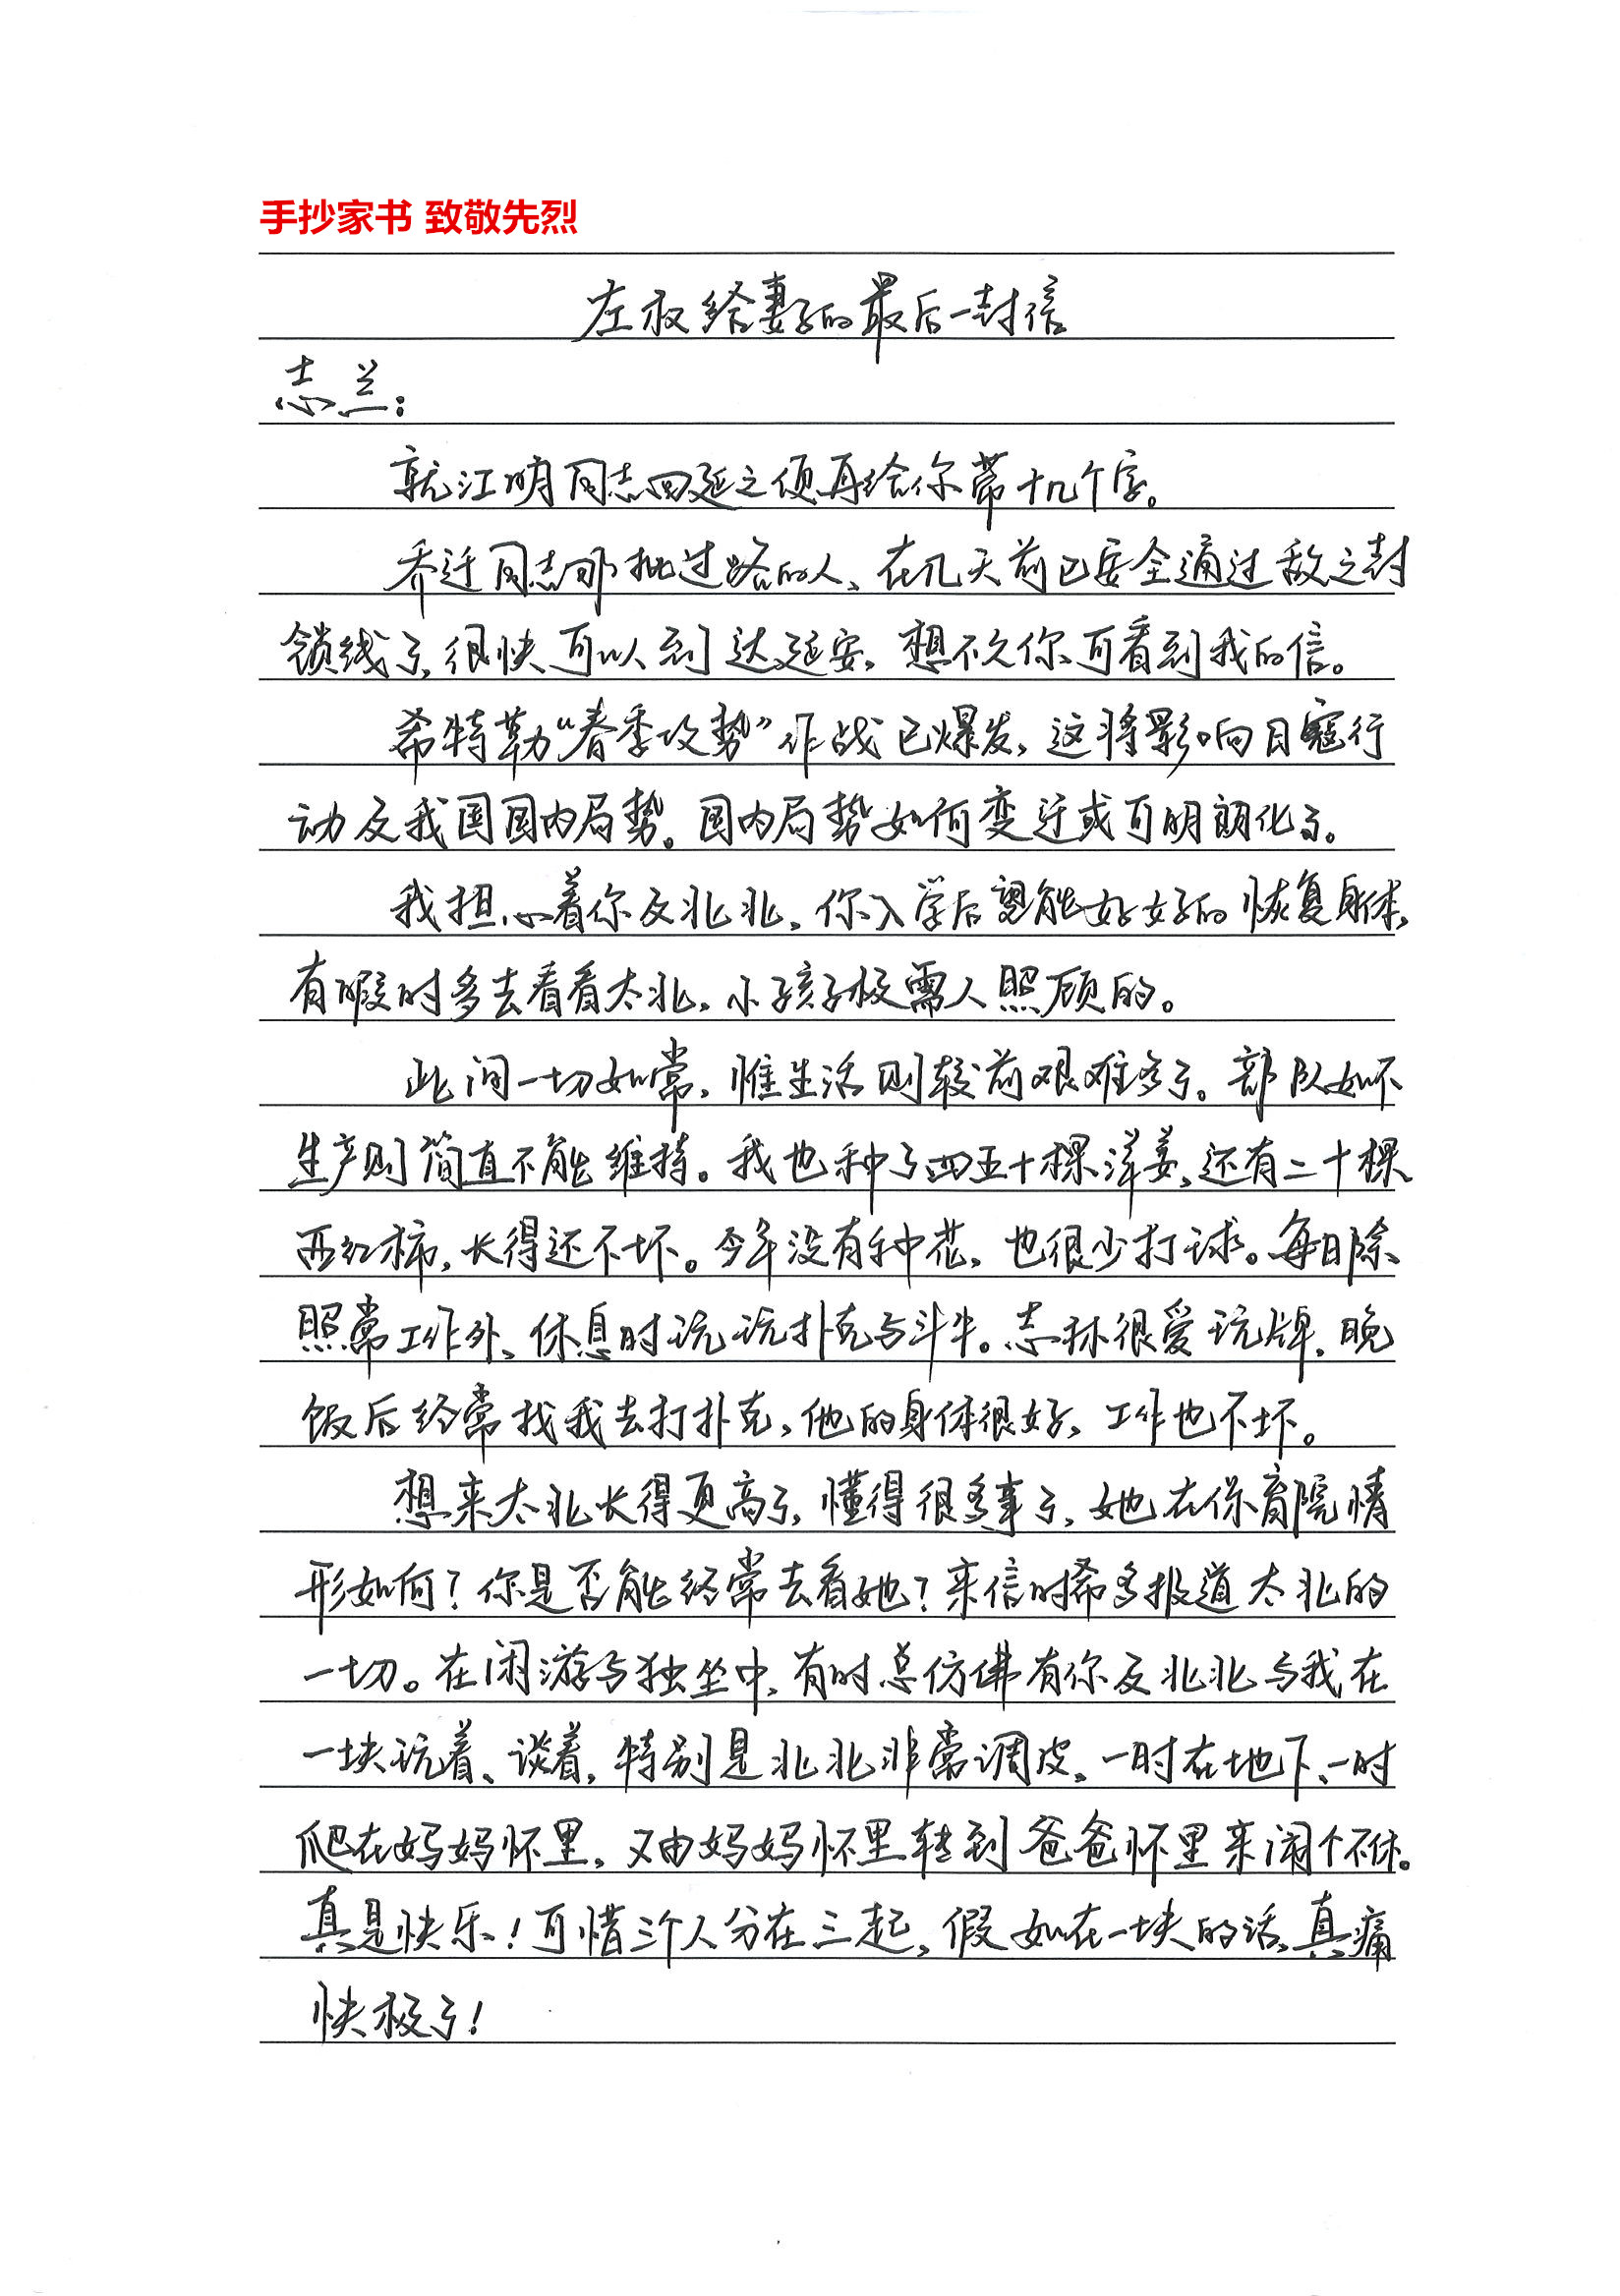 手抄家书 致敬先烈
左权给妻子的最后一封信
志兰：
就江明同志回延之便再给你带十几个字。
乔迁同志那批过路的人，在几天前已安全通过敌之封
锁线了，很快可以到达延安，想不久你可看到我的信。
希特勒“春季攻势”作战已爆发，这将影响日寇行
动及我国国内局势。国内局势如何变迁或可明朗化了。
我担心着你及北北，你入学后望能好好的恢复身体，
有暇时多去看看太北，小孩子极需人照顾的。
此间一切如常，惟生活则较前艰难多了。部队如不
生产则简直不能维持。我也种了四五十棵洋姜，还有二十棵
西红柿，长得还不坏。今年没有种花，也很少打球。每日除
照常工作外，休息时玩玩扑克与斗牛。志林很爱玩牌，晚
饭后经常找我去打扑克，他的身体很好，工作也不坏。
想来太北长得更高了，懂得很多事了，她在保育院情
形如何？你是否能经常去看她？来信时希多报道太北的
一切。在闲游与独坐中，有时总仿佛有你及北北与我在
一块玩着、谈着，特别是北北非常调皮，一时在地下、一时
爬在妈妈怀里，又由妈妈怀里转到爸爸怀里来闹个不休。
真是快乐！可惜三个人分在三起，假如在一块的话，真痛
快极了！